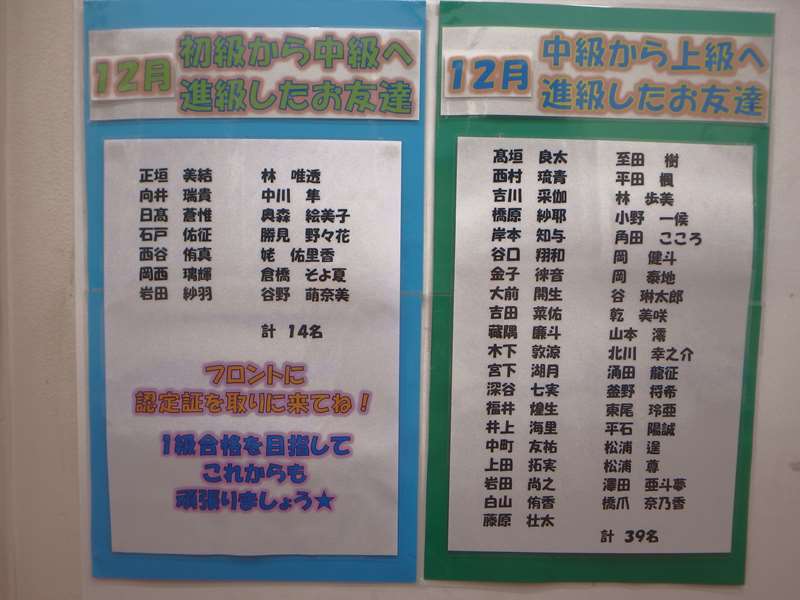 12月
初級から中級へ
進級したお友達
正垣 美結 林 唯透
向井 瑞貴 中川 隼
日髙 蒼惟 奥森 絵美子
石戸 佑征 勝見 野々花
西谷 侑真 姥 佑里香
岡西 璃輝 倉橋 そよ夏
岩田 紗羽 谷野 萌奈美
計 14名
フロントに
認定証を取りに来てね!
1級合格を目指して
これからも
頑張りましょう★
12月
中級から上級へ
進級したお友達
髙垣 良太 至田 樹
西村 琉青 平田 楓
吉川 采伽 林 歩美
橋原 紗耶 小野 一侯
岸本 知与 角田 こころ
谷口 翔和 岡 健斗
金子 徠音 岡 泰地
大前 開生 谷 琳太郎
吉田 菜佑 乾 美咲
藏隅 廉斗 山本 澪
木下 敦涼 北川 幸之介
宮下 湖月 涌田 龍征
深谷 七実 釜野 将希
福井 煌生 東尾 玲亜
井上 海里 平石 陽誠
中町 友祐 松浦 逞
上田 拓実 松浦 尊
岩田 尚之 澤田 亜斗夢
白山 侑香 橋爪 奈乃香
藤原 壮太
計 39名